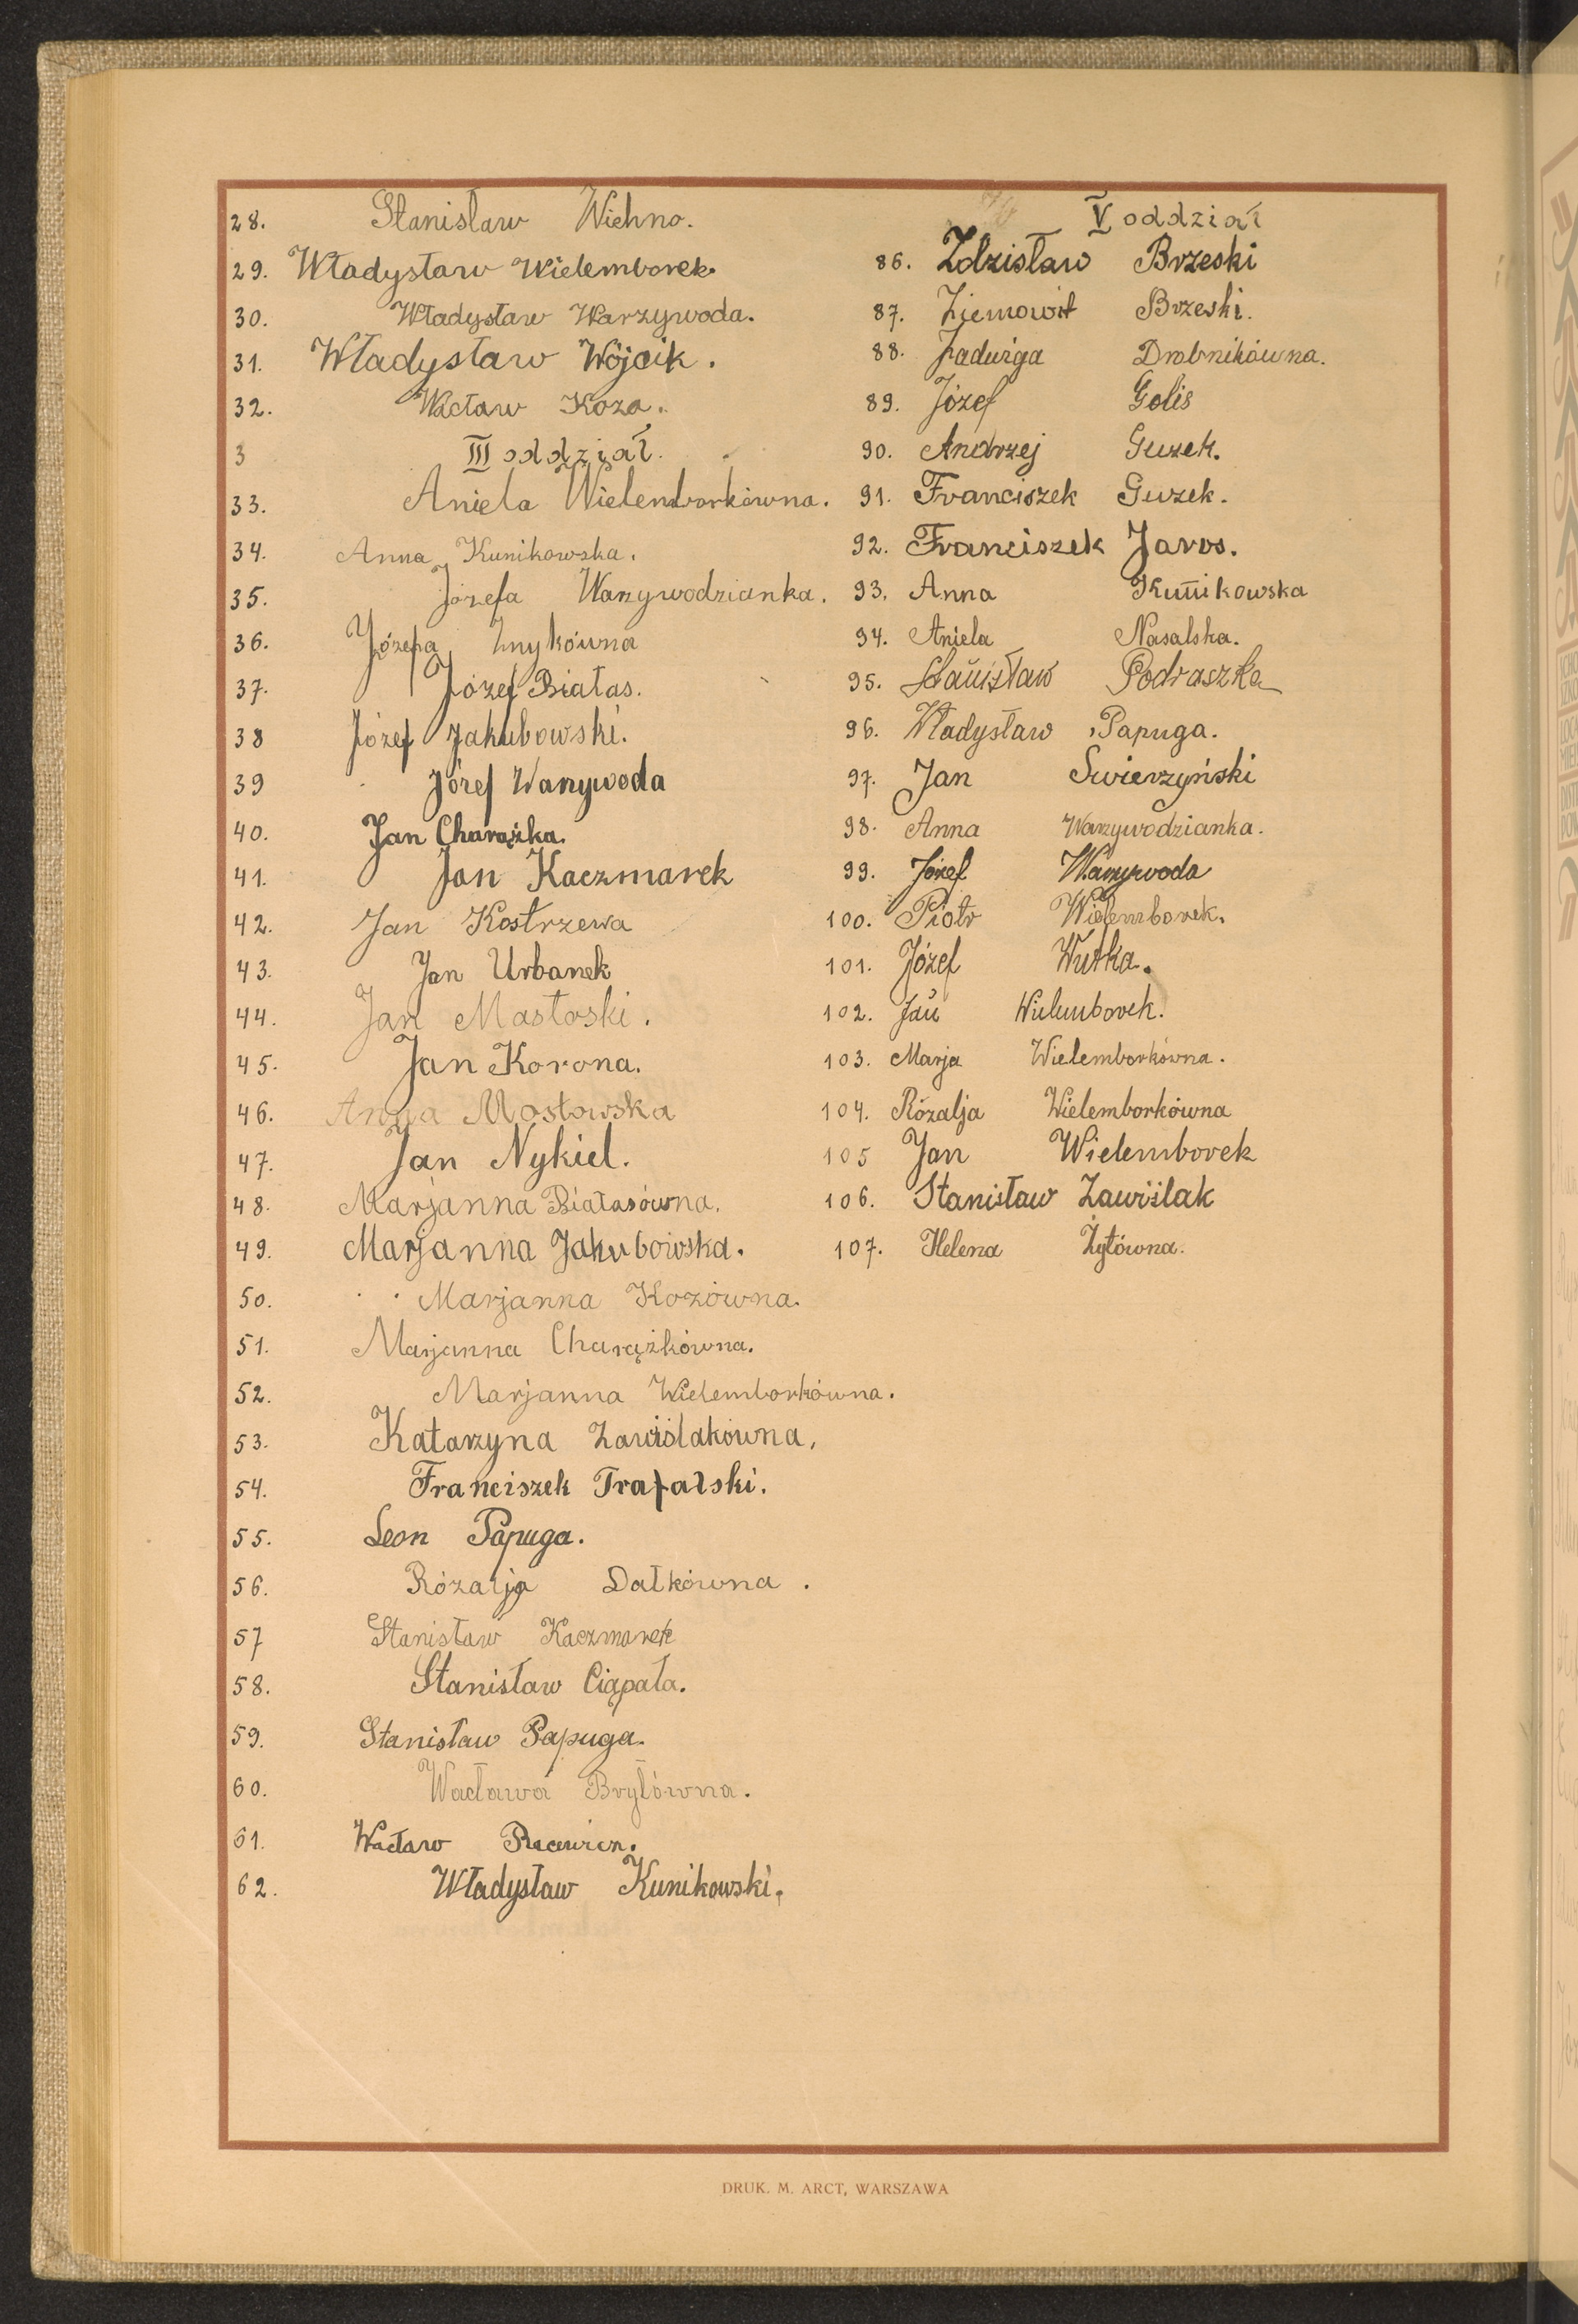 28. Stanisław Wichno.
29. Władysław Wielemborek.
30. Władysław Warzywoda.
31. Władysław Wójcik.
32. Wacław Koza.
3 III oddział.
33. Aniela Wielemborkówna.
34. Anna Kunikowska.
35. Józefa Warzywodzianka.
36. Józefa Żnykówna
37. Józef Białas.
38 Józef Jakubowski.
39 Józef Warzywoda
40. Jan Charążka.
41. Jan Kaczmarek
42. Jan Kostrzewa
43. Jan Urbanek
44. Jan Masłoski.
45. Jan Korona.
46. Anna Mosłowska
47. Jan Nykiel.
48. Marjanna Białasówna.
49. Marjanna Jakubowska.
50. Marjanna Kozówna.
51. Marjanna Charążkówna.
52. Marjanna Wielemborkówna.
53. Katarzyna Zawiślakówna,
54. Franciszek Trafalski.
55. Leon Papuga.
56. Rózalja Dałkówna.
57 Stanisław Kaczmarek
58. Stanisław Ciąpała.
59. Stanisław Papuga.
60. Wacława Bryłówna.
61. Wacław
62. Władysław Kunikowski.
V oddział
86. Zdzisław Brzeski
87. Ziemowit Brzeski.
88. Jadwiga Drobnikówna.
89. Józef Golis
90. Andrzej Guzek.
91. Franciszek Guzek.
92. Franciszek Jaros.
93. Anna Kunikowska
94. Aniela Nasalska.
95. Stanisław Podraszka
96. Władysław Papuga.
97. Jan Swierzyński
98. Anna Warzywodzianka.
99. Józef Warzywoda
100. Piotr Wielemborek.
101. Józef Wutka.
102. Jan Wielemborek.
103. Marja Wielemborkówna.
104. Rózalja Wielemborkówna
105 Jan Wielemborek
106. Stanisław Zawiślak
107. Helena Żyłówna.
DRUK. M. ARCT, WARSZAWA